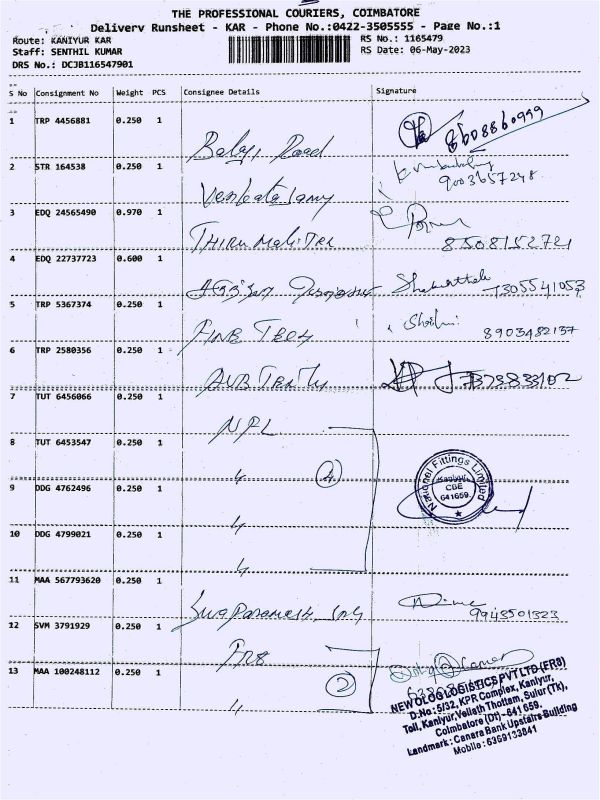 THE PROFESSIONAL COURIERS, COIMBATORE
Delivery Runsheet - KAR - Phone No.:0422-3505555 - Page No.:1
Route: KANIYUR KAR
RS No.: 1165479
Staff: SENTHIL KUMAR
RS Date: 06-May-2023
DRS No.: DCJB116547901
S No Consignment No Weight PCS Consignee Details Signature
1 TRP 4456881 0.250 1
8608860999
2 STR 164538 0.250 1
9003657248
3 EDQ 24565490 0.970 1
8508152721
4 EDQ 22737723 0.600 1
7305541053
5 TRP 5367374 0.250 1 FINE TECH
8903482137
6 TRP 2580356 0.250 1
7373833102
7 TUT 6456066 0.250 1 NPL
8 TUT 6453547 0.250 1
4
National Fittings Limited
Kaniyur
CBE
641659.
9 DDG 4762496 0.250 1
10 DDG 4799021 0.250 1
11 MAA 567793620 0.250 1
9943501323
12 SVM 3791929 0.250 1
13 MAA 100248112 0.250 1
2
NEWOLOGLOGISTICS PVT LTD (FR8)
D.No : 5/32, KPR Complex, Kaniyur,
Toll, Kaniyur, Vellath Thottam, Sulur (Tk),
Coimbatore (Dt) - 641 659.
Landmark : Canara Bank Upstairs Building
Mobile : 6369133841